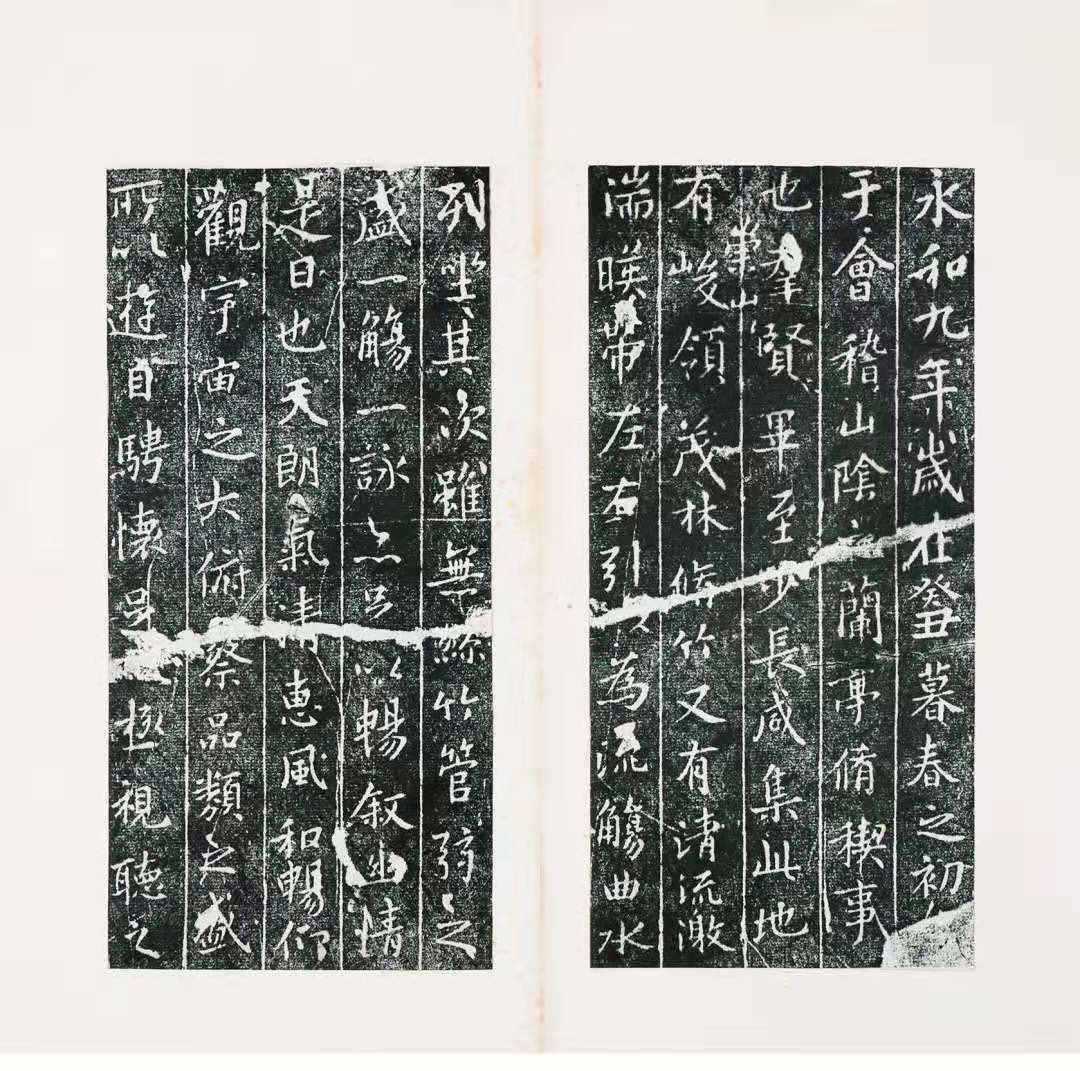 永和九年歲在癸丑暮春之初
于會稽山陰之蘭亭脩稧事
也羣賢畢至少長咸集此地
有崇山峻領茂林脩竹又有清流激
湍暎帶左右引以為流觴曲水
列坐其次雖無絲竹管弦之
盛一觴一詠亦足以暢敘幽情
是日也天朗氣清惠風和暢仰
觀宇宙之大俯察品類之盛
所以遊目騁懷足極視聽之